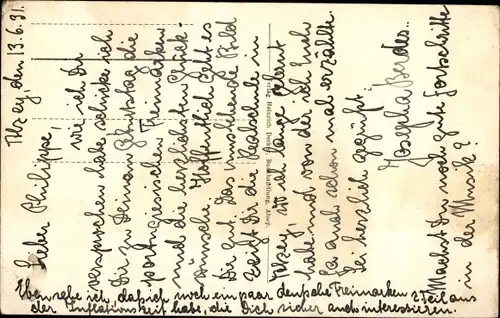 Alzey, den 13.6.31.
Lieber Philippe!
Wie ich Dir
versprochen habe schicke ich
Dir zu Deinem Geburtstag die
portugiesischen Freimarken
und die herzlichsten Glück-
wünsche. Hoffentlich geht es
Dir gut. Das umstehende Bild
zeigt Dir die Realschule in
Alzey, wo ich lange gelernt
habe und von der ich Euch
ja auch schon mal erzählte.
Sei herzlich gegrüßt.
Josepha
Machst Du noch gute Fortschritte
in der Musik?
Eben sehe ich, daß ich noch ein paar deutsche Freimarken z. Teil aus
der Inflationszeit habe, die Dich sicher auch interessieren.
Verlag Heinrich Buchhandlung, Alzey.